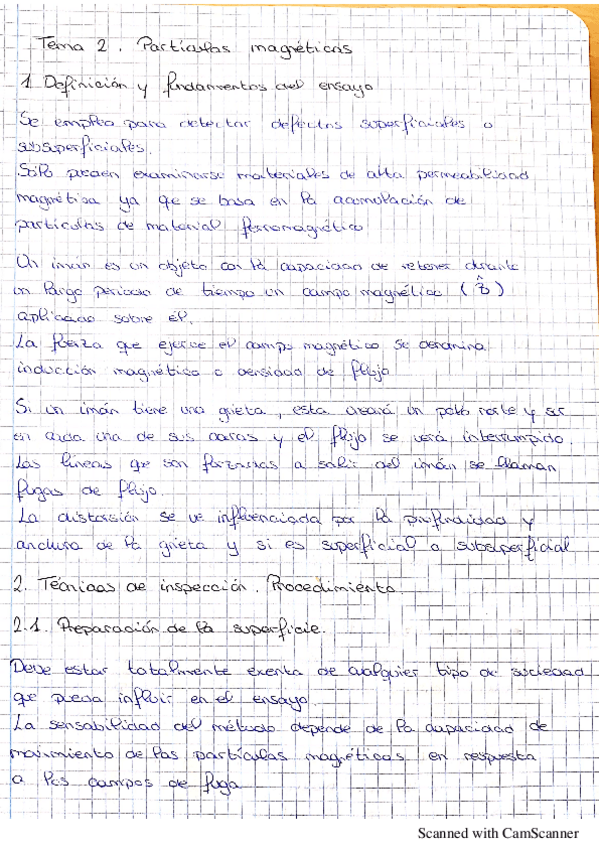 Tema 2. Partículas magnéticas
1 Definición y fundamentos del ensayo
Se emplea para detectar defectos superficiales o
subsuperficiales.
Sólo pueden examinarse materiales de alta permeabilidad
magnética ya que se basa en la acumulación de
partículas de material ferromagnético
Un imán es un objeto con la capacidad de retener durante
un largo periodo de tiempo un campo magnético (B)
aplicado sobre él.
La fuerza que ejerce el campo magnético se denomina
inducción magnética o densidad de flujo
Si un imán tiene una grieta, esta creará un polo norte y sur
en cada una de sus caras y el flujo se verá interrumpido.
Las líneas que son forzadas a salir del imán se llaman
fugas de flujo.
La distorsión se ve influenciada por la profundidad y
anchura de la grieta y si es superficial o subsuperficial
2. Técnicas de inspección. Procedimiento
2.1. Preparación de la superficie.
Debe estar totalmente exenta de cualquier tipo de suciedad
que pueda influir en el ensayo.
La sensabilidad del método depende de la capacidad de
movimiento de las partículas magnéticas en respuesta
a los campos de fuga
Scanned with CamScanner